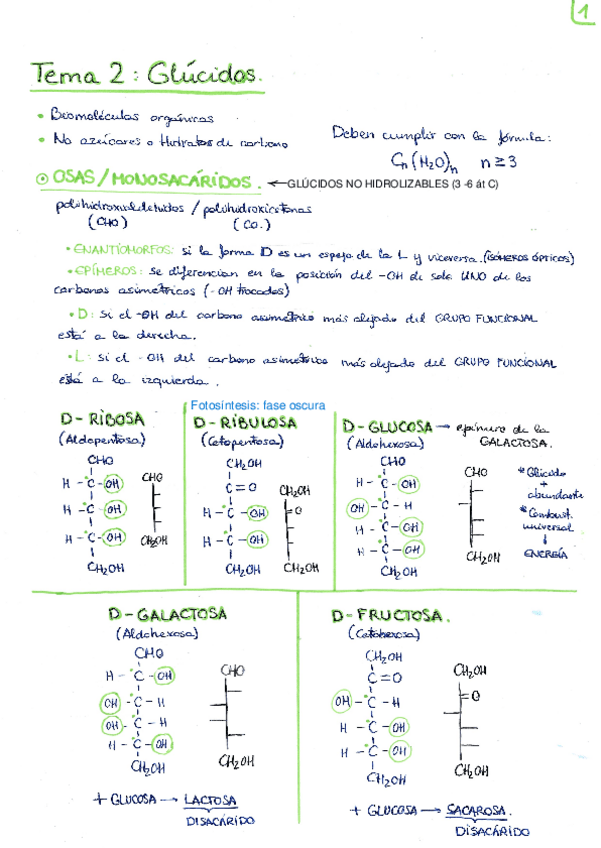 1
Tema 2: Glúcidos.
• Biomoléculas orgánicas
• No azúcares o Hidratos de carbono
Deben cumplir con la fórmula:
Cn(H2O)n n≥3
OSAS/MONOSACÁRIDOS. ←GLÚCIDOS NO HIDROLIZABLES (3 -6 át C)
polihidroxialdehídos / polihidroxicetonas
(CHO) (CO.)
• ENANTIOMORFOS: si la forma D es un espejo de la L y viceversa. (ISÓMEROS ÓPTICOS)
• EPÍMEROS: se diferencian en la posición del -OH de solo UNO de los
carbonos asimétricos (-OH trocados)
• D: si el -OH del carbono asimétrico más alejado del GRUPO FUNCIONAL
está a la derecha.
• L: si el -OH del carbono asimétrico más alejado del GRUPO FUNCIONAL
está a la izquierda.
Fotosíntesis: fase oscura
D-RIBOSA
(Aldopentosa)
CHO
H-C-OH
H-C-OH
H-C-OH
CH2OH
CHO
CH2OH
D-RIBULOSA
(Cetopentosa)
CH2OH
C=O
H-C-OH
H-C-OH
CH2OH
CH2OH
=O
CH2OH
D-GLUCOSA → epímero de la
GALACTOSA.
(Aldohexosa)
CHO
H-C-OH
OH-C-H
H-C-OH
H-C-OH
CH2OH
CHO
CH2OH
* Glúcido
+
abundante
* Combust.
universal
↓
ENERGÍA
D-GALACTOSA
(Aldohexosa)
CHO
H-C-OH
OH-C-H
OH-C-H
H-C-OH
CH2OH
CHO
CH2OH
+ GLUCOSA → LACTOSA
DISACÁRIDO
D-FRUCTOSA.
(Cetohexosa)
CH2OH
C=O
OH-C-H
H-C-OH
H-C-OH
CH2OH
CH2OH
=O
CH2OH
+ GLUCOSA → SACAROSA.
DISACÁRIDO